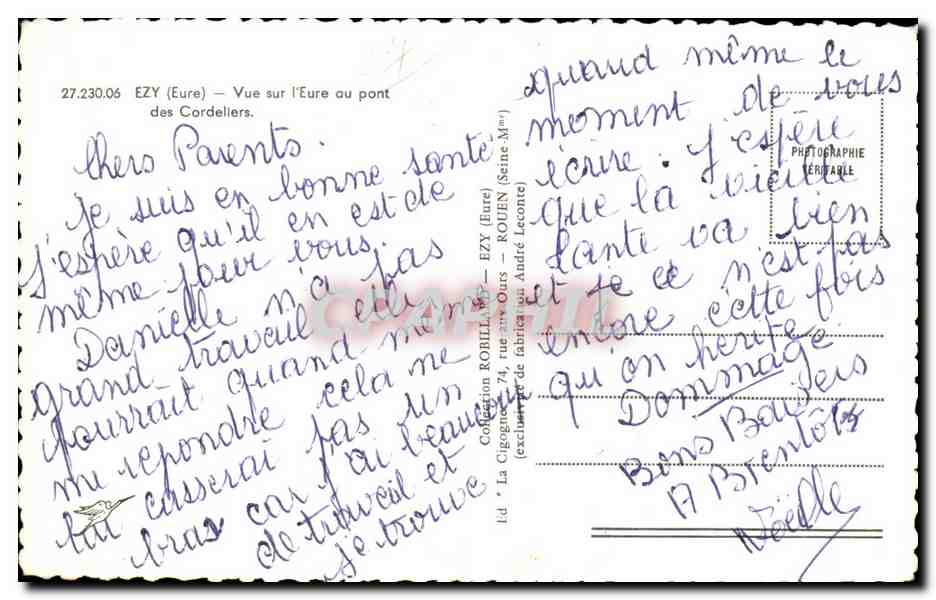 27.230.06 EZY (Eure) — Vue sur l'Eure au pont
des Cordeliers.
Chers Parents.
je suis en bonne santé
j'espère qu'il en est de
même pour vous.
Danielle n'a pas
grand travail elle
pourrait quand même
me repondre cela ne
lui casserai pas un
bras car j'ai beaucoup
de travail et
je trouve
Collection ROBILLARD — EZY (Eure)
Ed "La Cigogne" 74, rue aux Ours — ROUEN (Seine Mme)
(exclusivité de fabrication André Leconte)
quand même le
moment de vous
écrire. J'espère
que la vieille
tante va bien
et que ce n'est pas
encore cette fois
qu'on hérite
Dommage
Bons Baisers
A Bientôt
Noëlle
PHOTOGRAPHIE
VÉRITABLE
CPAPHIL